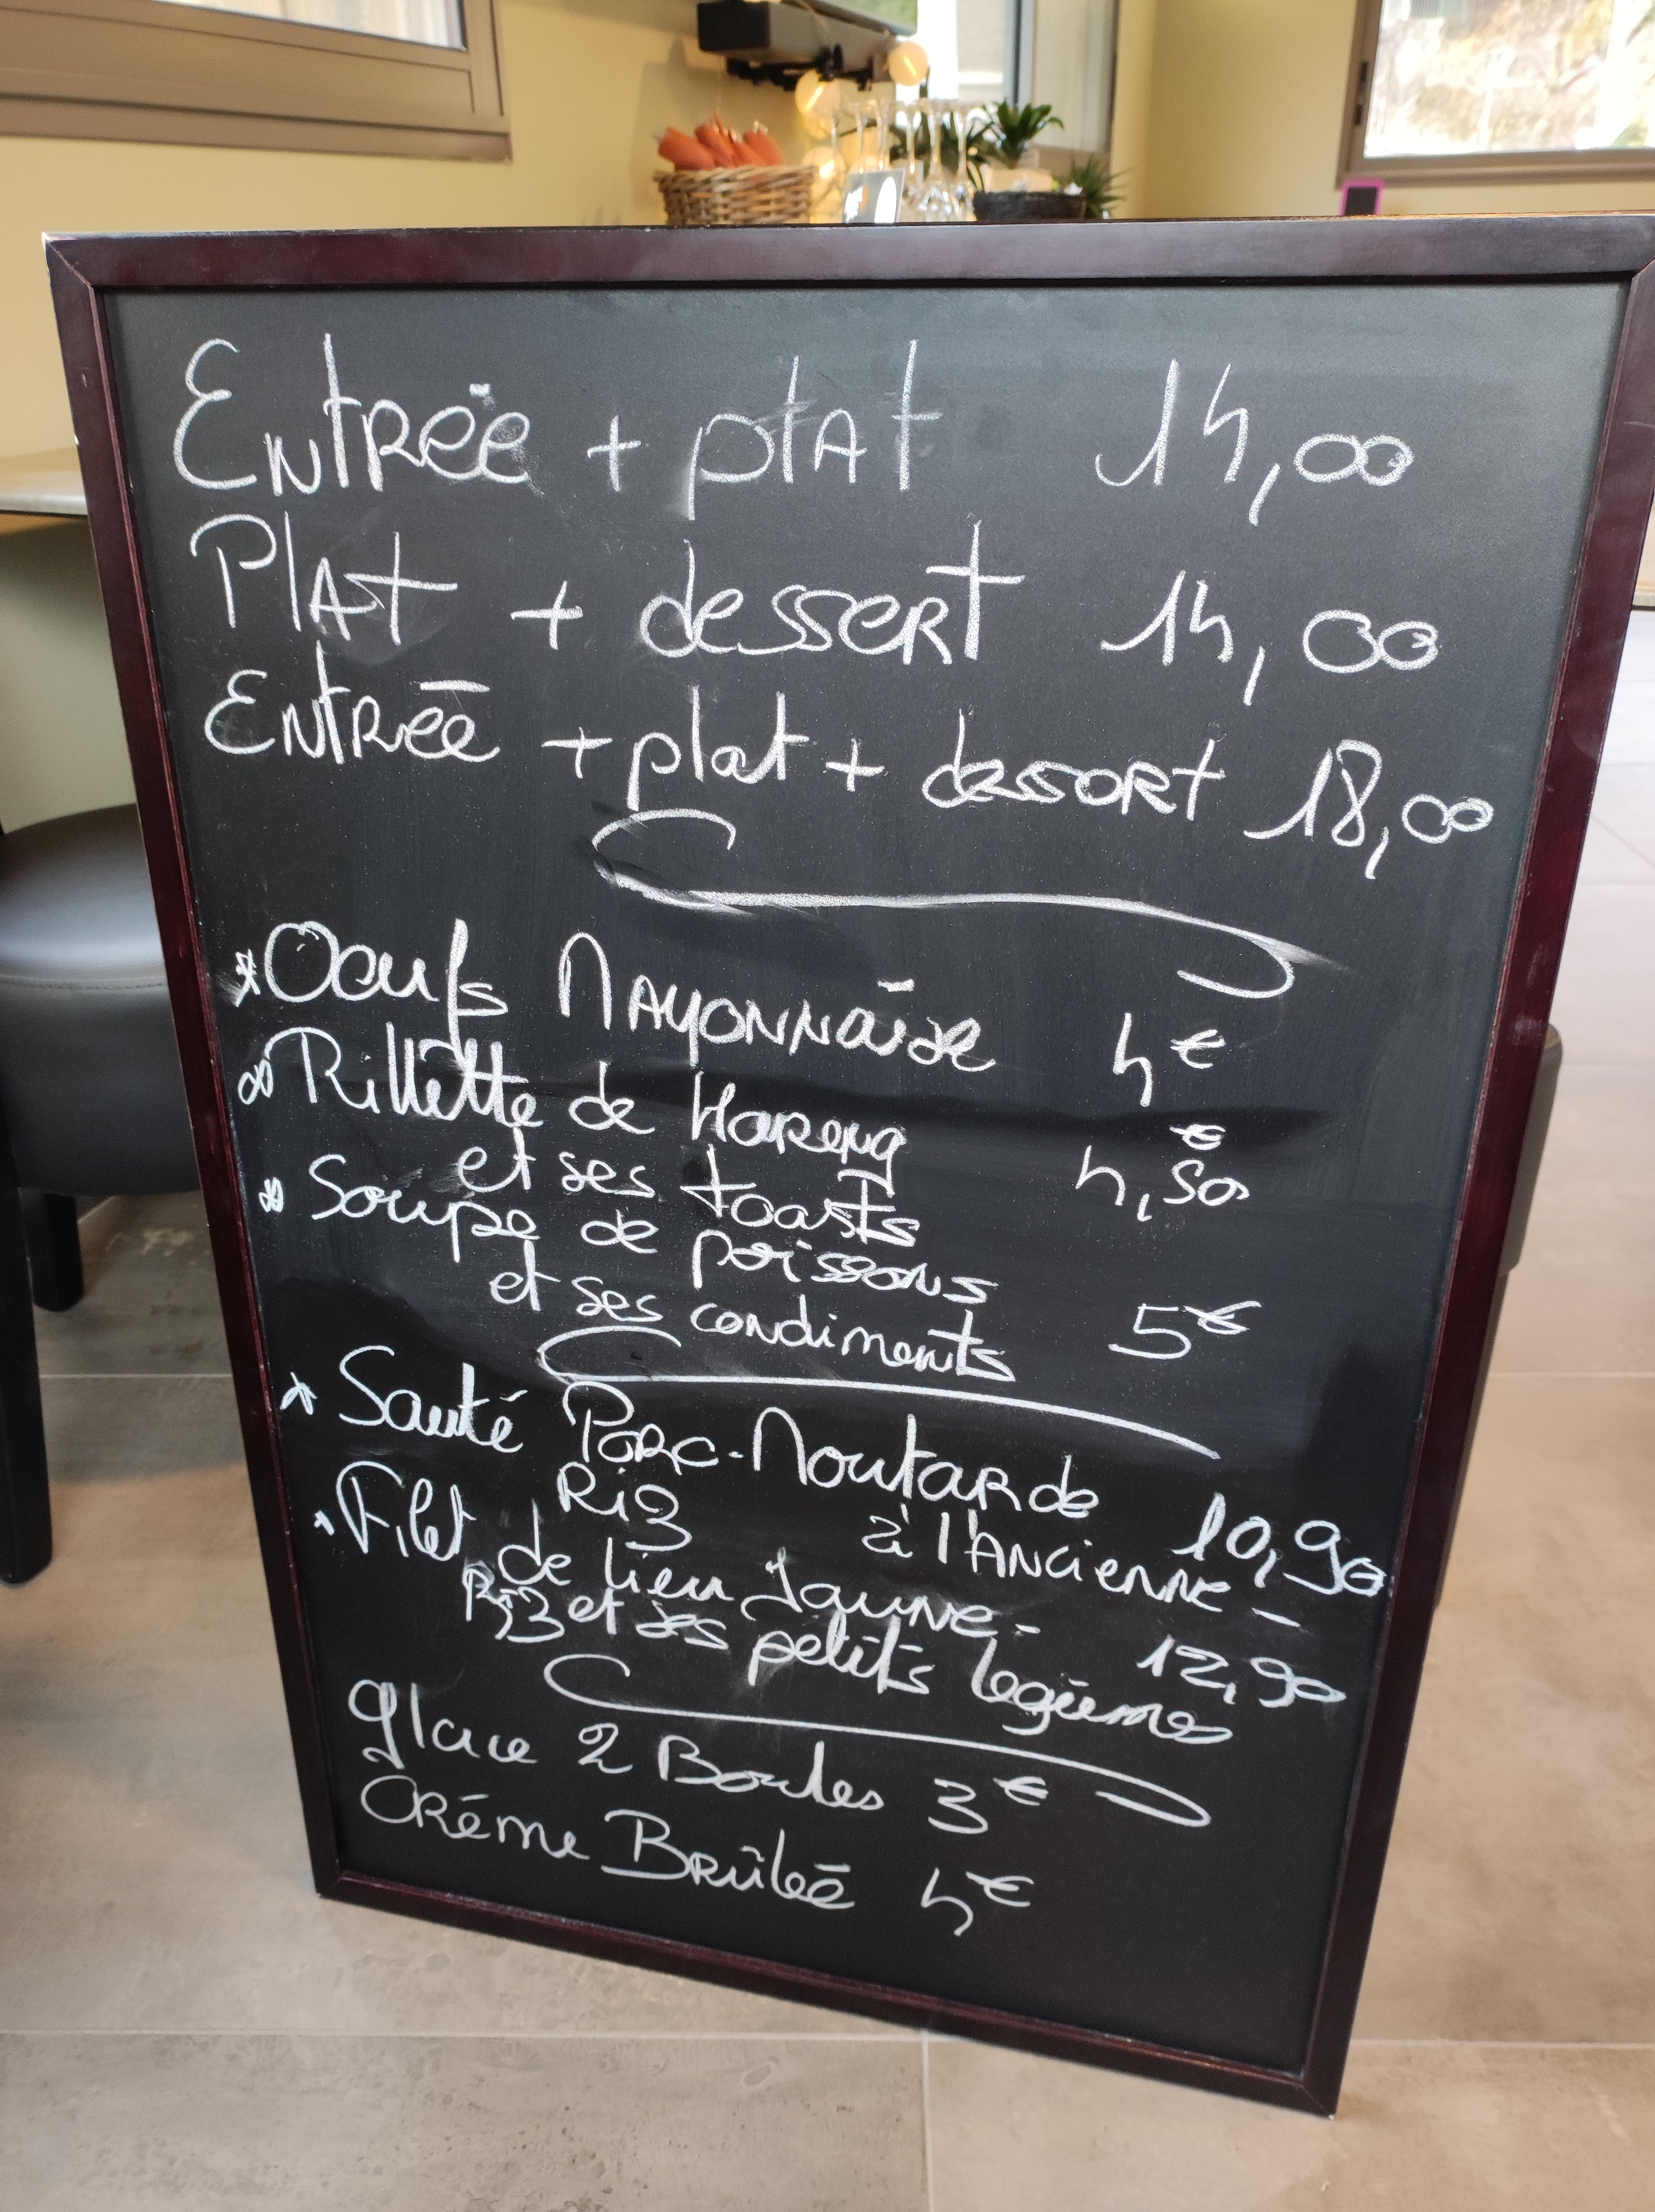 Entrée + plat 14,00
Plat + dessert 14,00
Entrée + plat + dessert 18,00
* Oeufs Mayonnaise 4€
* Rillette de Hareng
et ses toasts 4,50€
* Soupe de poissons
et ses condiments 5€
* Sauté Porc-Moutarde
Riz à l'Ancienne - 10,90
* Filet de lieu Jaune -
Riz et ses petits légumes 12,90
Glace 2 Boules 3€
Créme Brûlée 4€